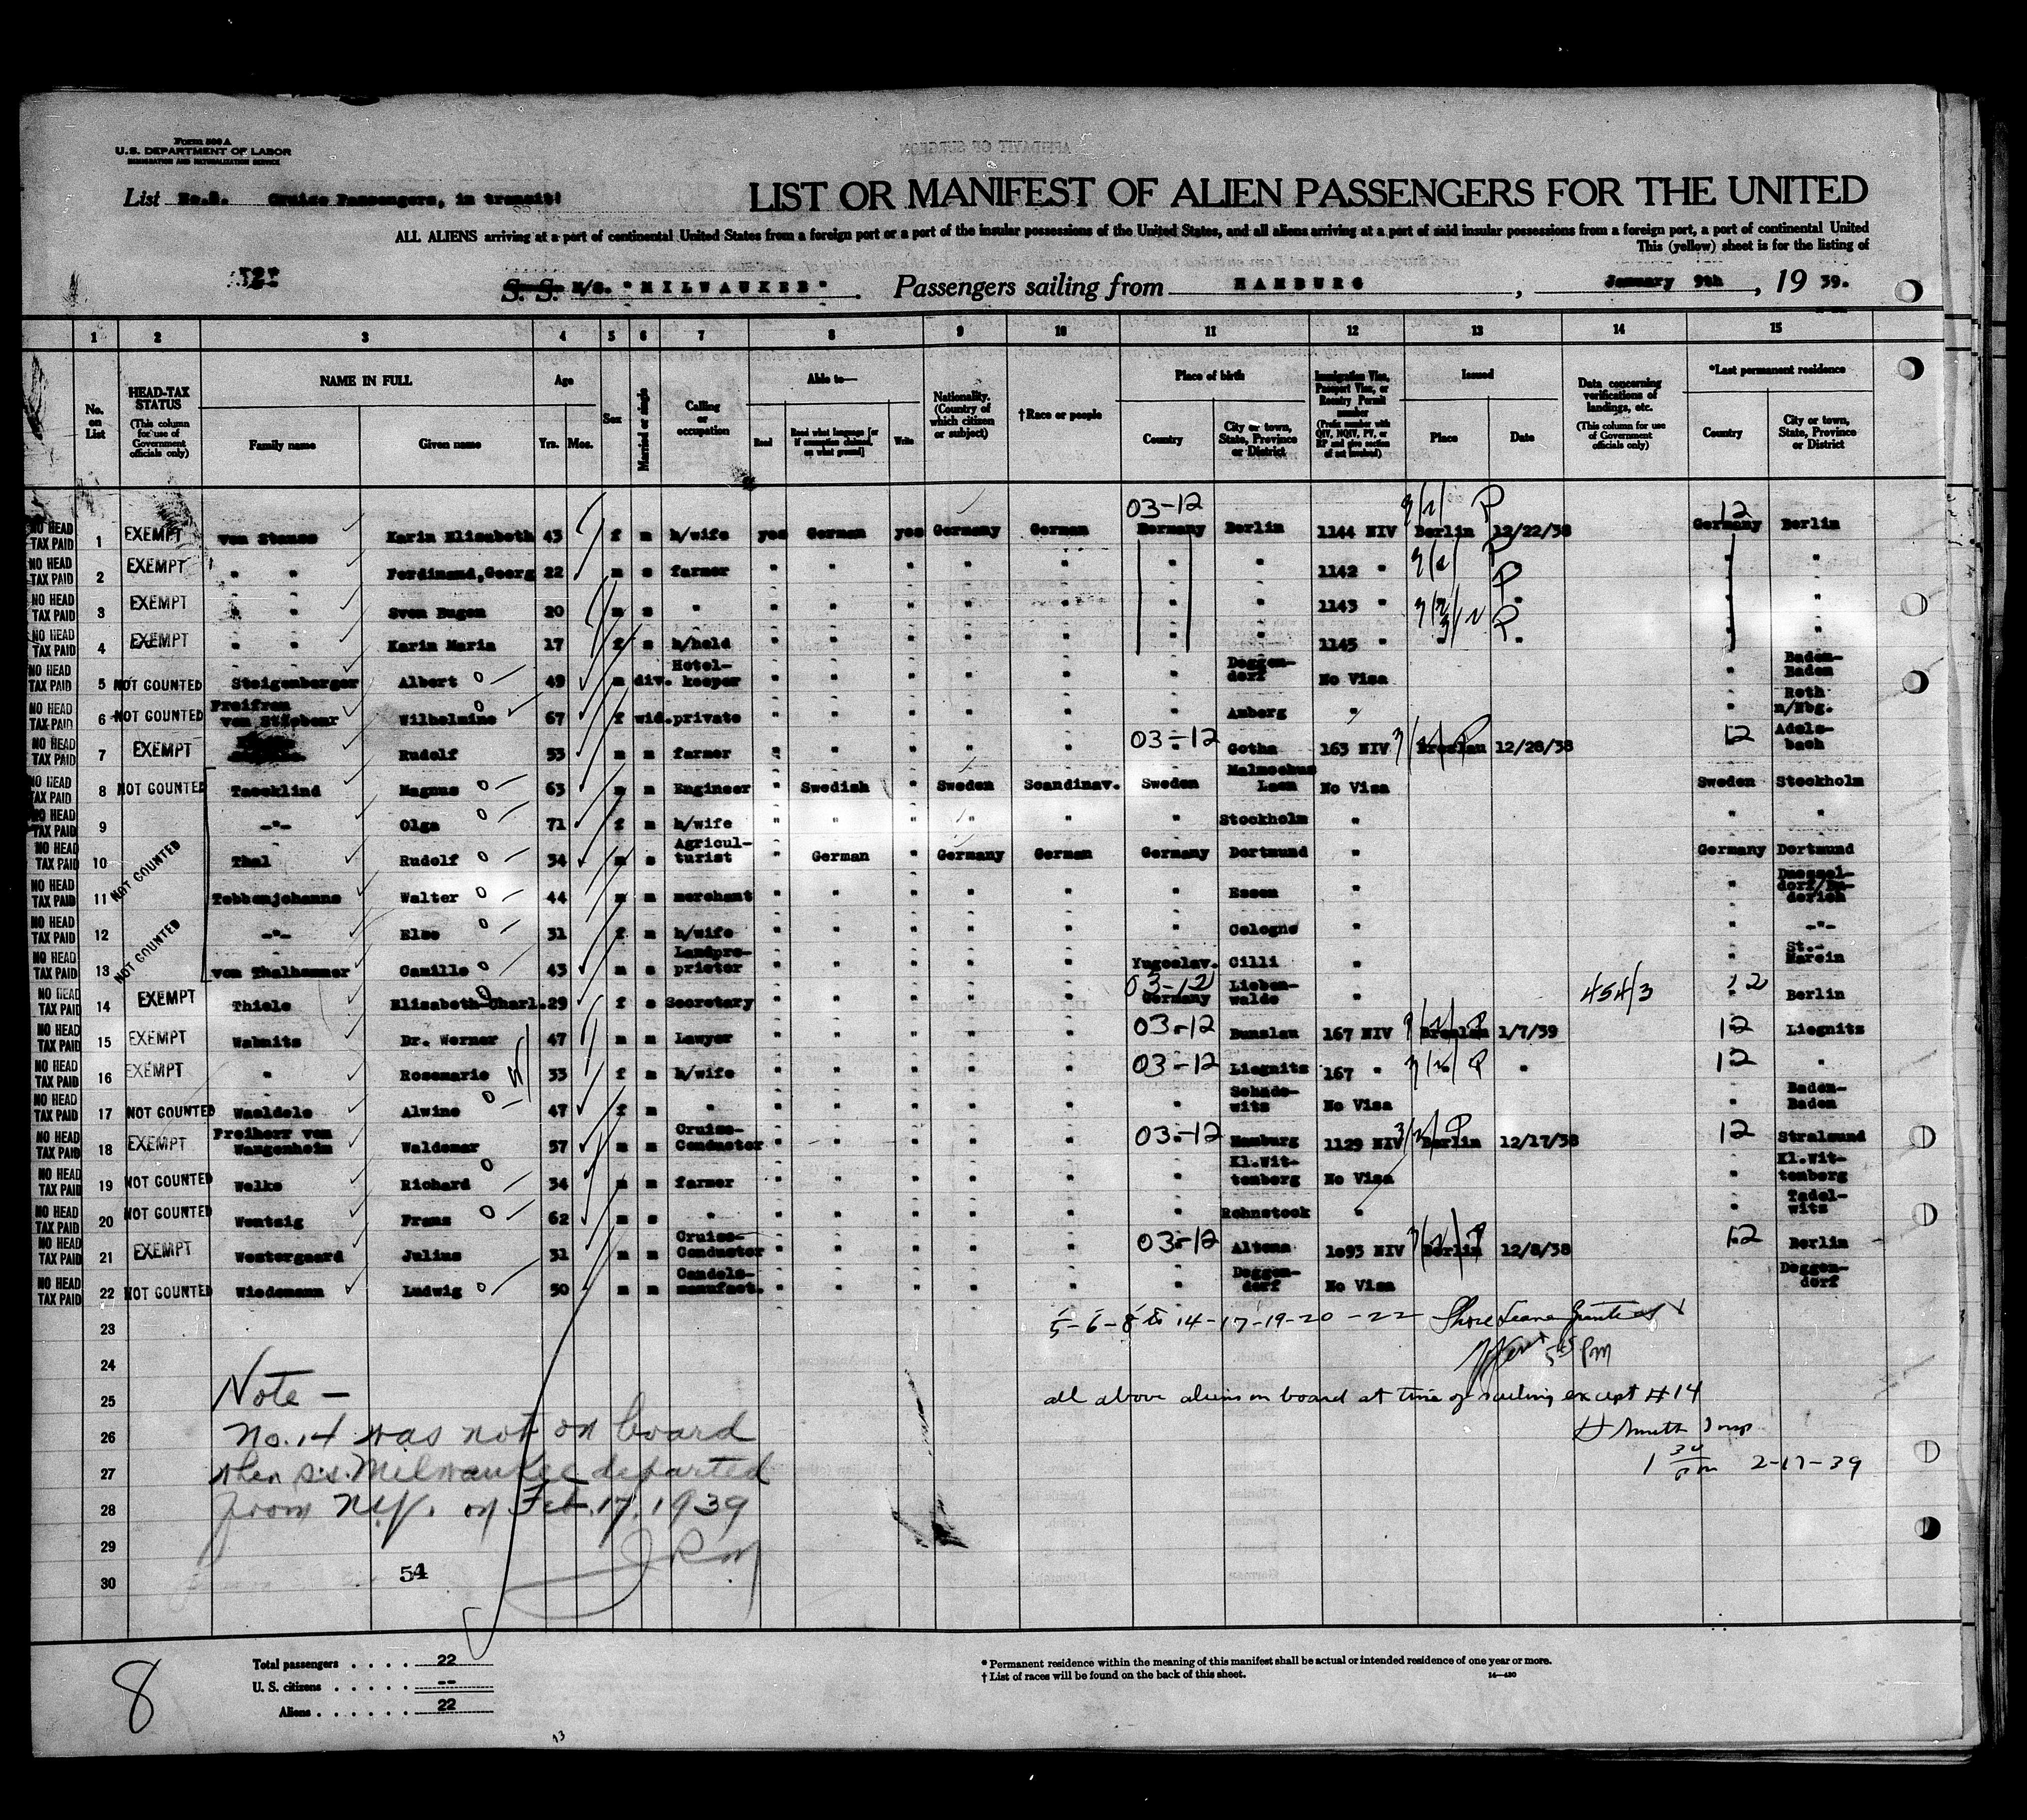 Form 500 A
U.S. DEPARTMENT OF LABOR
IMMIGRATION AND NATURALIZATION SERVICE
List Cruise Passengers, in transit!
LIST OR MANIFEST OF ALIEN PASSENGERS FOR THE UNITED
ALL ALIENS arriving at a port of continental United States from a foreign port or a port of the insular possessions of the United States, and all aliens arriving at a port of said insular possessions from a foreign port, a port of continental United
This (yellow) sheet is for the listing of
S. S. M/S. "MILWAUKEE" Passengers sailing from HAMBURG, January 9th, 19 39.
1 2 3 4 5 6 7 8 9 10 11 12 13 14 15
No. on List
HEAD-TAX STATUS (This column for use of Government officials only)
NAME IN FULL Family name Given name
Age Yrs. Mos.
Sex
Married or single
Calling or occupation
Able to— Read Read what language [or if exemption claimed, on what ground] Write
Nationality. (Country of which citizen or subject)
†Race or people
Place of birth Country City or town, State, Province or District
Immigration Visa, Passport Visa, or Reentry Permit number (Prefix number with QIV, NQIV, PV, or RP and give section of act involved)
Issued Place Date
Data concerning verifications of landings, etc. (This column for use of Government officials only)
*Last permanent residence Country City or town, State, Province or District
NO HEAD TAX PAID 1 EXEMPT von Stauss Karin Elisabeth 43 f m h/wife yes German yes Germany German 03-12 Germany Berlin 1144 NIV Berlin 12/22/38 12 Germany Berlin
NO HEAD TAX PAID 2 EXEMPT " " Ferdinand,Georg 22 m s farmer " " " " " " " 1142 " " "
NO HEAD TAX PAID 3 EXEMPT " " Sven Eugen 20 m s " " " " " " " " 1143 " " "
NO HEAD TAX PAID 4 EXEMPT " " Karin Maria 17 f s h/hold " " " " " " " 1145 " " "
NO HEAD TAX PAID 5 NOT COUNTED Steigenberger Albert 49 m div. Hotel-keeper " " " " " " Deggen-dorf No Visa " Baden-Baden
NO HEAD TAX PAID 6 NOT COUNTED Freifrau von Wilhelmine 67 f wid. private " " " " " " Amberg " " Roth n/Nbg.
NO HEAD TAX PAID 7 EXEMPT Rudolf 53 m m farmer " " " " " 03-12 Gotha 163 NIV Breslau 12/28/38 12 Adels-bach
NO HEAD TAX PAID 8 NOT COUNTED Magnus 63 m m Engineer " Swedish " Sweden Scandinav. Sweden Malmoehus Laen No Visa Sweden Stockholm
NO HEAD TAX PAID 9 -"- Olga 71 f m h/wife " " " " " " Stockholm " " "
NO HEAD TAX PAID 10 NOT COUNTED Thal Rudolf 34 m s Agricul-turist " German " Germany German Germany Dortmund " Germany Dortmund
NO HEAD TAX PAID 11 Tebbenjohanns Walter 44 m m merchant " " " " " " Essen " "
NO HEAD TAX PAID 12 -"- Else 31 f m h/wife " " " " " " Cologne " " -"-
NO HEAD TAX PAID 13 NOT COUNTED von Thalhammer Camillo 43 m s Landpro-prietor " " " " " Yugoslav. Cilli " " St.-Marein
NO HEAD TAX PAID 14 EXEMPT Thiele Elisabeth Charl. 29 f s Secretary " " " " " 03-12 Germany Lieben-walde " 454/3 12 Berlin
NO HEAD TAX PAID 15 EXEMPT Dr. Werner 47 m m Lawyer " " " " " 03-12 Bunslau 167 NIV Breslau 1/7/39 12 Liegnitz
NO HEAD TAX PAID 16 EXEMPT " Rosemarie 33 f m h/wife " " " " " 03-12 Liegnitz 167 " " 12 "
NO HEAD TAX PAID 17 NOT COUNTED Waeldele Alwine 47 f m " " " " " " " No Visa " Baden-Baden
NO HEAD TAX PAID 18 EXEMPT Freiherr von Wangenheim Waldemar 57 m m Cruise-Conductor " " " " " 03-12 Hamburg 1129 NIV Berlin 12/17/38 12 Stralsund
NO HEAD TAX PAID 19 NOT COUNTED Welke Richard 34 m m farmer " " " " " " Kl.Wit-tenberg No Visa " Kl.Wit-tenberg
NO HEAD TAX PAID 20 NOT COUNTED Wentzig Frans 62 m s " " " " " " " Rohnstock " " Tadel-witz
NO HEAD TAX PAID 21 EXEMPT Westergaard Julius 31 m m Cruise-Conductor " " " " " 03-12 Altona 1093 NIV Berlin 12/8/38 12 Berlin
NO HEAD TAX PAID 22 NOT COUNTED Wiedemann Ludwig 50 m m Candels-manufact. " " " " " " Deggen-dorf No Visa " Deggen-dorf
23 5-6-8 to 14-17-19-20-22 Shore Leave Granted
24 5 45 PM
25 Note - all above aliens on board at time of sailing except #14
26 No. 14 was not on board H Smith Insp
27 when s.s. Milwaukee departed 1 30 pm 2-17-39
28 from N.Y. on Feb. 17, 1939
29 JRM
30 54
8
Total passengers . . . . 22
U. S. citizens . . . . . --
Aliens . . . . . . 22
* Permanent residence within the meaning of this manifest shall be actual or intended residence of one year or more.
† List of races will be found on the back of this sheet.
14—430